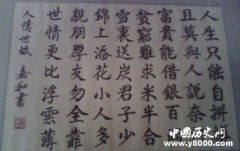 人生只能自拼
且莫與人說奈
富貴能借銀百
貧窮難求米半合
雪裏送炭君子少
錦上添花小人多
親朋厚友勿全靠
世情更比浮雲薄
人情世故 嘉和書
中国历史网
www.y5000.com